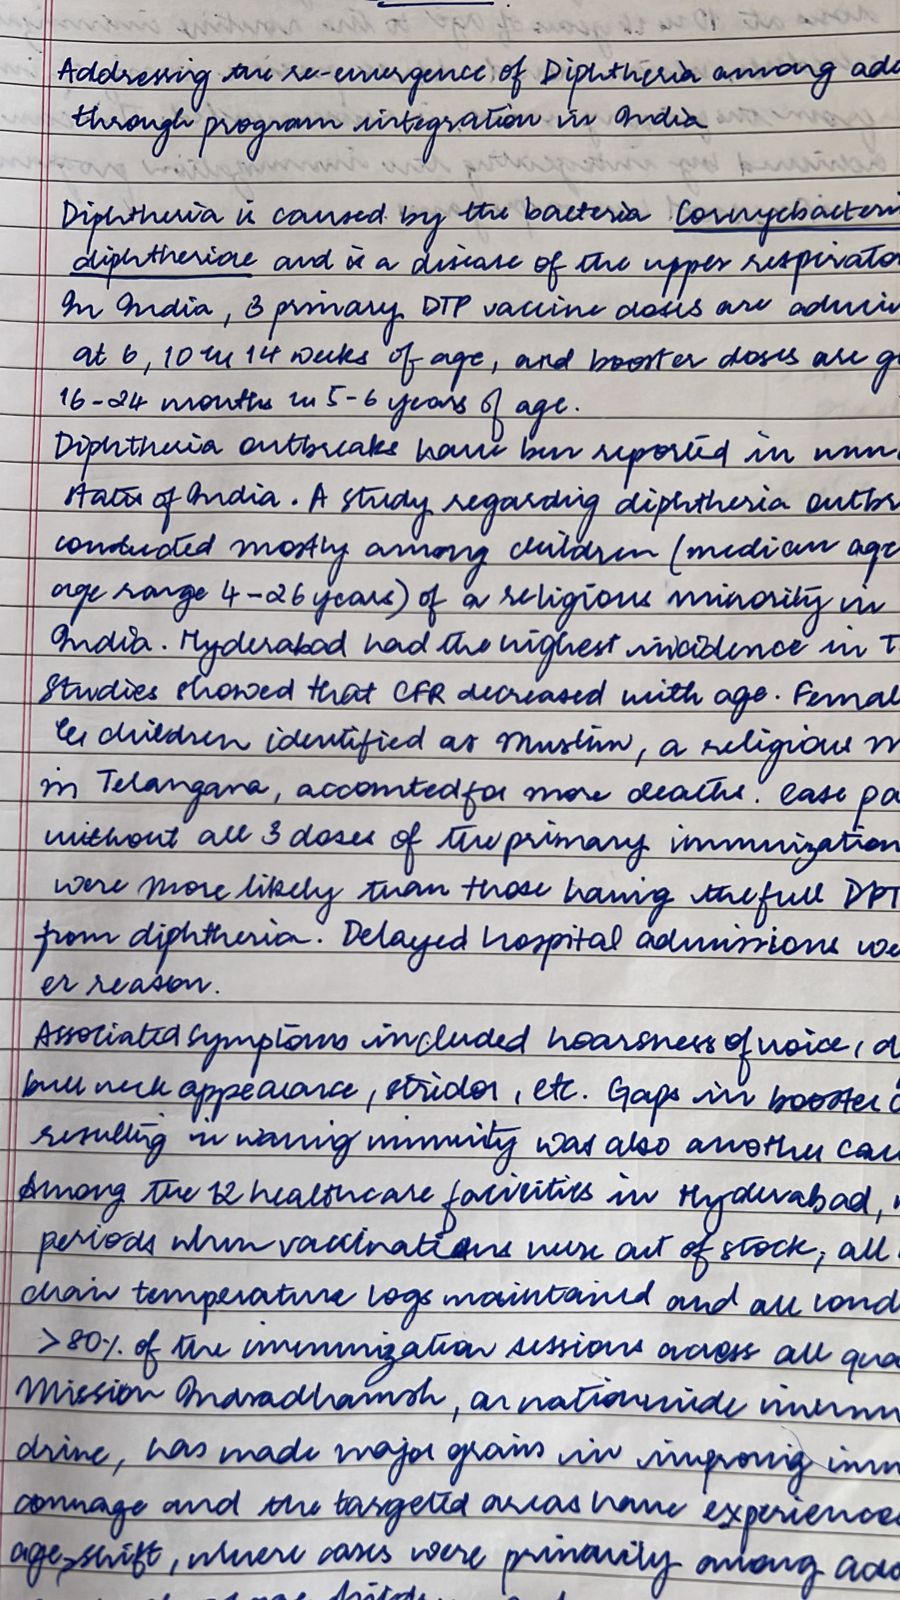 Addressing the re-emergence of Diphtheria among ado
through program integration in India
Diphtheria is caused by the bacteria Cornycbacteri
diphtheriae and is a disease of the upper respirato
In India, 3 primary DTP vaccine doses are admini
at 6, 10 & 14 weeks of age, and booster doses are g
16-24 months & 5-6 years of age.
Diphtheria outbreaks have been reported in num
states of India. A study regarding diphtheria outbr
conducted mostly among children (median age
age range 4-26 years) of a religious minority in
India. Hyderabad had the highest incidence in T
Studies showed that CFR decreased with age. Femal
& children identified as Muslim, a religious m
in Telangana, accounted for more deaths. Case pa
without all 3 doses of the primary immunization
were more likely than those having the full DPT
from diphtheria. Delayed hospital admissions we
er reason.
Associated symptoms included hoarsness of voice, d
bull neck appearance, stridor, etc. Gaps in booster
resulting in waning immunity was also another cau
Among the 12 healthcare facilities in Hyderabad,
periods when vaccinations were out of stock, all
chain temperature logs maintained and all cond
>80% of the immunization sessions across all qua
Mission Indradhanush, a nationwide immun
drive, has made major grains in improving imm
coverage and the targeted areas have experience
age shift, where cases were primarily among ado